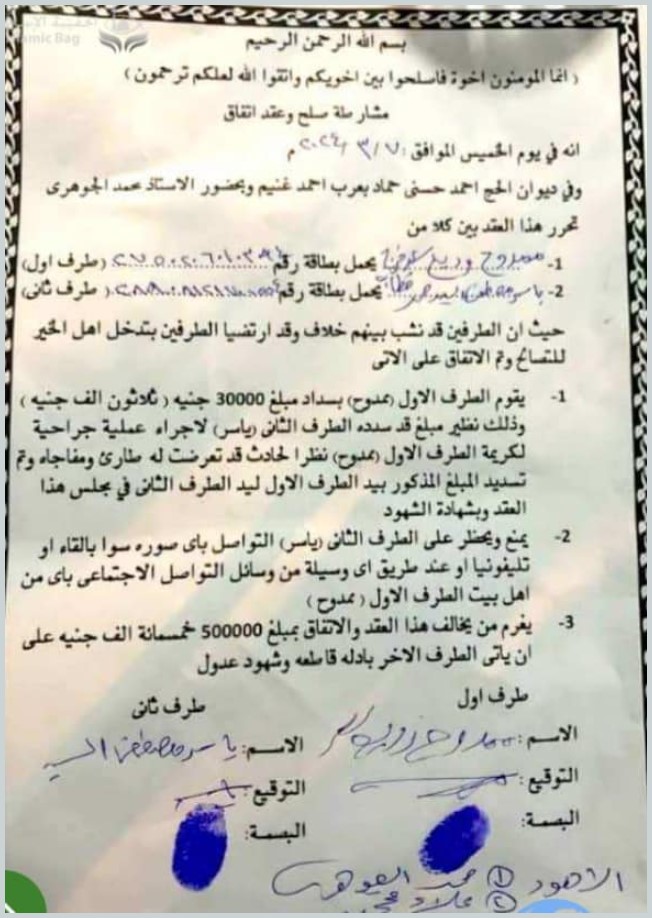 الحقيبة الا
amic Bag
بسم الله الرحمن الرحيم
( انما المؤمنون اخوة فاسلحوا بين اخويكم واتقوا الله لعلكم ترحمون )
مشارطة صلح وعقد اتفاق
انه في يوم الخميس الموافق : ٢٠٢٤/٣/٧ م
وفي ديوان الحج احمد حسنى حماد بعرب احمد غنيم وبحضور الاستاذ محمد الجوهرى
تحرر هذا العقد بين كلا من
1- ممدوح وديع يحمل بطاقة رقم (طرف اول)
2- ياسر مصطفى السيد يحمل بطاقة رقم (طرف ثانى)
حيث ان الطرفين قد نشب بينهم خلاف وقد ارتضيا الطرفين بتدخل اهل الخير
للتصالح وتم الاتفاق على الاتى
1- يقوم الطرف الاول (ممدوح) بسداد مبلغ 30000 جنيه ( ثلاثون الف جنيه )
وذلك نظير مبلغ قد سدده الطرف الثانى (ياسر) لاجراء عملية جراحية
لكريمة الطرف الاول (ممدوح) نظرا لحادث قد تعرضت له طارئ ومفاجاه وتم
تسديد المبلغ المذكور بيد الطرف الاول ليد الطرف الثانى في مجلس هذا
العقد وبشهادة الشهود
2- يمنع ويحظر على الطرف الثانى (ياسر) التواصل باى صوره سوا بالقاء او
تليفونيا او عند طريق اى وسيلة من وسائل التواصل الاجتماعى باى من
اهل بيت الطرف الاول ( ممدوح )
3- يغرم من يخالف هذا العقد والاتفاق بمبلغ 500000 خمسمائة الف جنيه على
ان ياتى الطرف الاخر بادله قاطعه وشهود عدول
طرف اول
طرف ثانى
الاسم : ممدوح
الاسم : ياسر مصطفى السيد
التوقيع :
التوقيع :
البصمة :
البصمة :
الشهود ① محمد الجوهرى
②